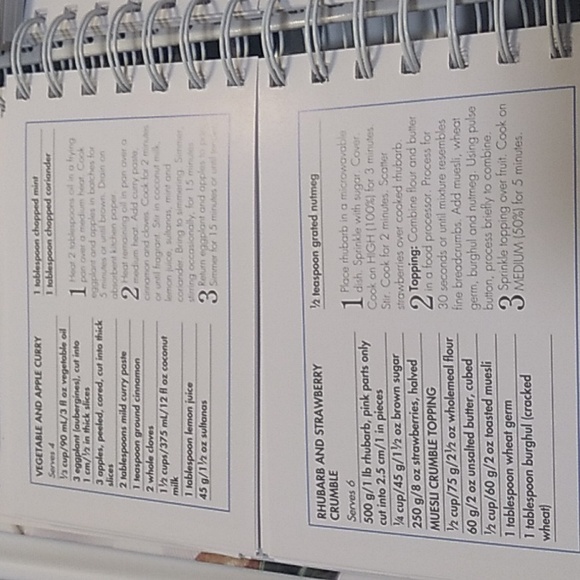 VEGETABLE AND APPLE CURRY
Serves 4
⅓ cup/90 mL/3 fl oz vegetable oil
3 eggplant (aubergines), cut into
1 cm/½ in thick slices
3 apples, peeled, cored, cut into thick
slices
2 tablespoons mild curry paste
1 teaspoon ground cinnamon
2 whole cloves
1½ cups/375 mL/12 fl oz coconut
milk
1 tablespoon lemon juice
45 g/1½ oz sultanas
1 tablespoon chopped mint
1 tablespoon chopped coriander
1 Heat 2 tablespoons oil in a frying
pan over a medium heat. Cook
eggplant and apples in batches for
5 minutes or until brown. Drain on
absorbent kitchen paper.
2 Heat remaining oil in pan over a
medium heat. Add curry paste,
cinnamon and cloves. Cook for 2 minutes
or until fragrant. Stir in coconut milk,
lemon juice, sultanas, mint and
coriander. Bring to simmering. Simmer,
stirring occasionally, for 15 minutes.
3 Return eggplant and apples to
Simmer for 15 minutes or until
RHUBARB AND STRAWBERRY
CRUMBLE
Serves 6
500 g/1 lb rhubarb, pink parts only
cut into 2.5 cm/1 in pieces
¼ cup/45 g/1½ oz brown sugar
250 g/8 oz strawberries, halved
MUESLI CRUMBLE TOPPING
½ cup/75 g/2½ oz wholemeal flour
60 g/2 oz unsalted butter, cubed
½ cup/60 g/2 oz toasted muesli
1 tablespoon wheat germ
1 tablespoon burghul (cracked
wheat)
½ teaspoon grated nutmeg
1 Place rhubarb in a microwavable
dish. Sprinkle with sugar. Cover.
Cook on HIGH (100%) for 3 minutes.
Stir. Cook for 2 minutes. Scatter
strawberries over cooked rhubarb.
2 Topping: Combine flour and butter
in a food processor. Process for
30 seconds or until mixture resembles
fine breadcrumbs. Add muesli, wheat
germ, burghul and nutmeg. Using pulse
button, process briefly to combine.
3 Sprinkle topping over fruit. Cook on
MEDIUM (50%) for 5 minutes.